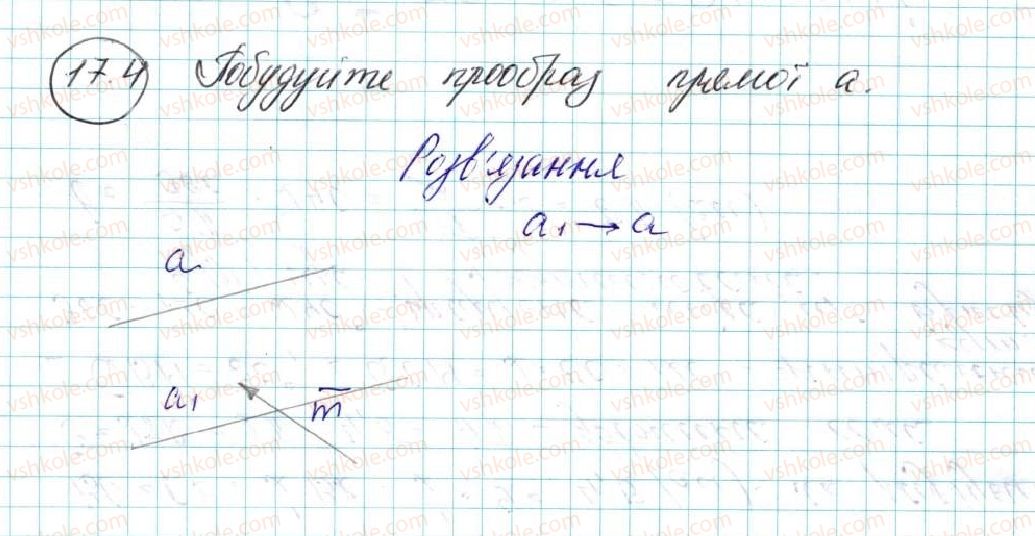 17.4 Побудуйте прообраз прямої a.
Розв'язання
a₁ → a
a
a₁
m̅